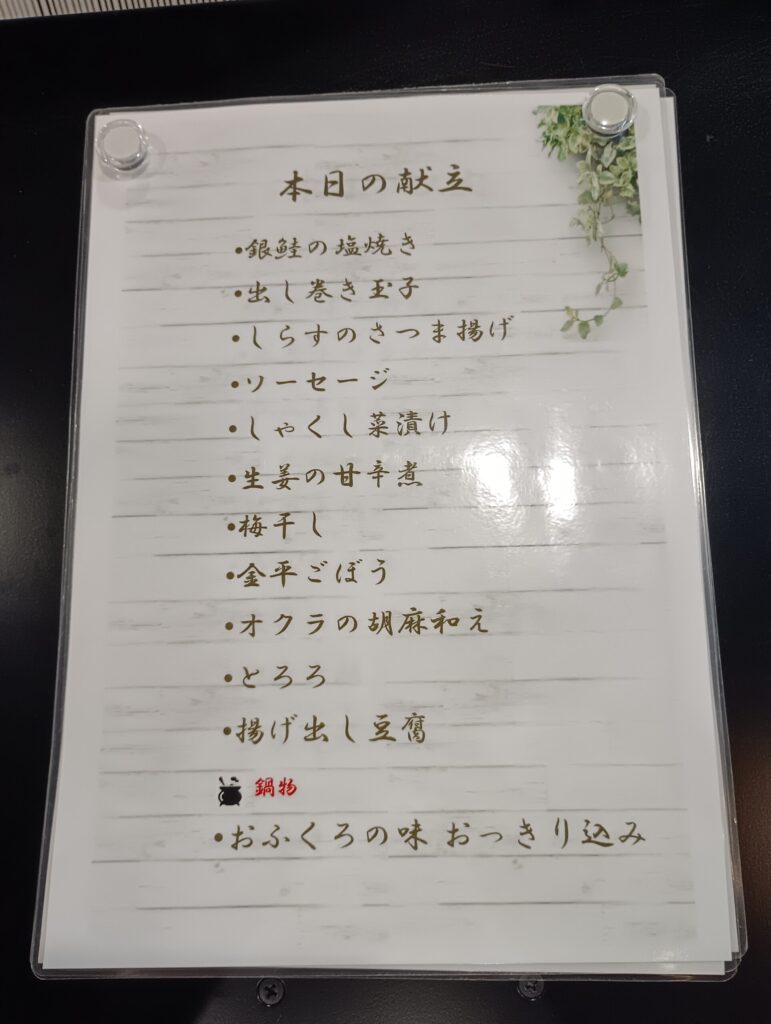 本日の献立
•銀鮭の塩焼き
•出し巻き玉子
•しらすのさつま揚げ
•ソーセージ
•しゃくし菜漬け
•生姜の甘辛煮
•梅干し
•金平ごぼう
•オクラの胡麻和え
•とろろ
•揚げ出し豆腐
鍋物
•おふくろの味 おっきり込み